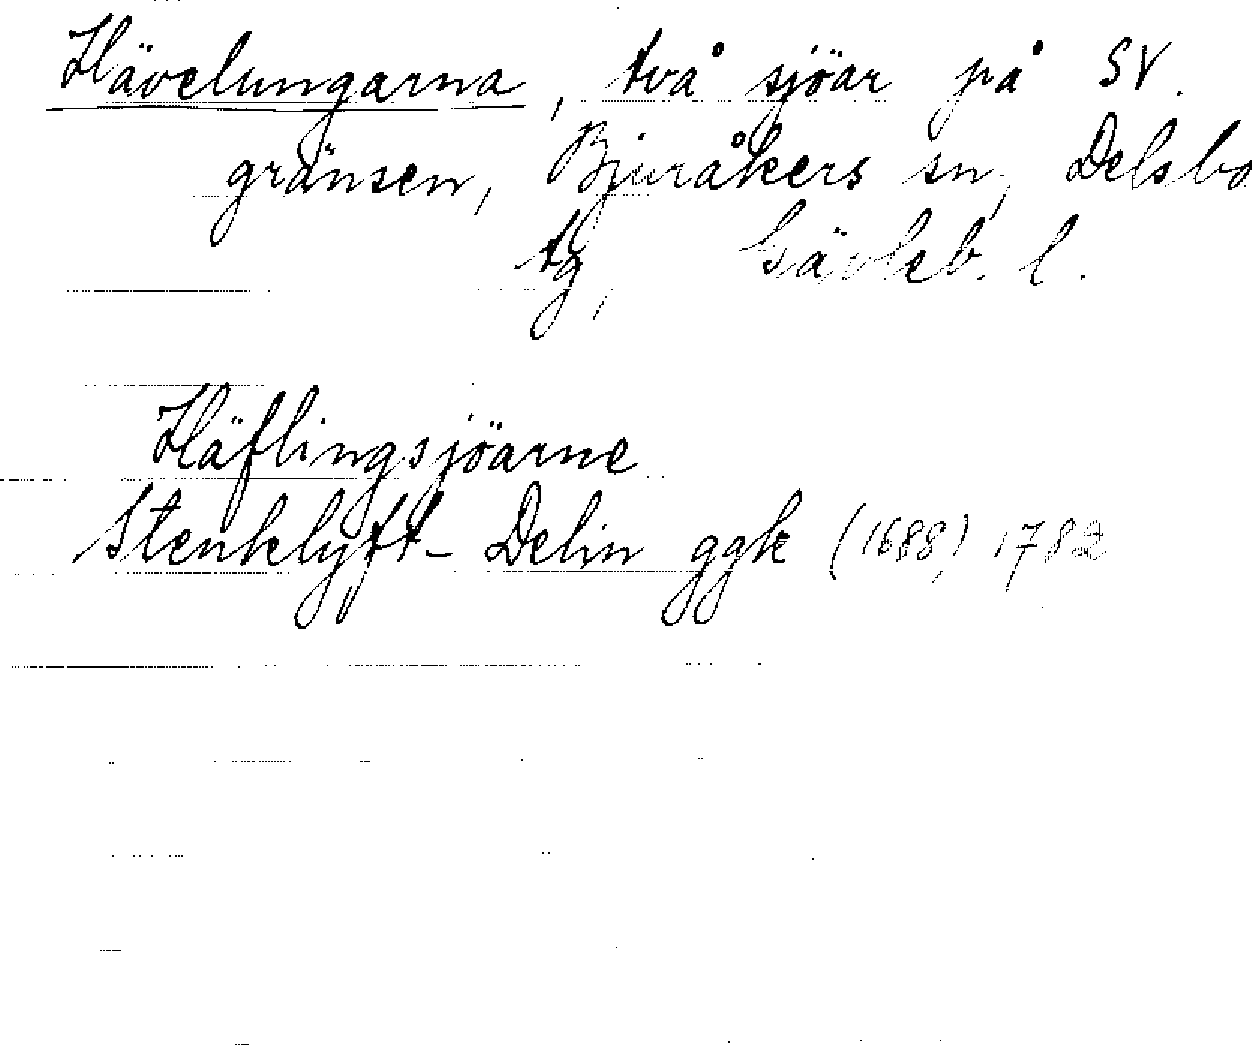 Hävelungarna, två sjöar på SV.
gränsen, Bjuråkers sn, Delsbo
tg, Gävleb. l.
Häflingsjöarne
Stenklyft - Delin ggk (1688) 1782